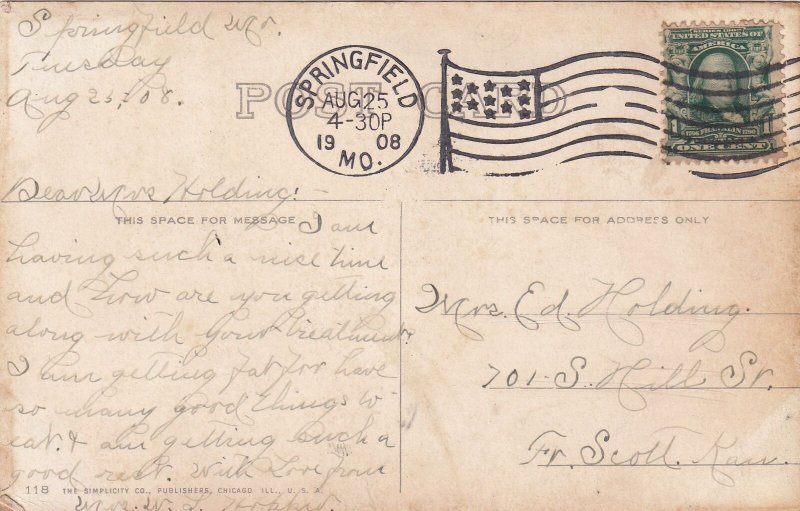 Springfield Mo.
Tuesday
Aug 25, '08.
POST CARD
SPRINGFIELD
AUG 25
4-30P
1908
MO.
SERIES 1902
UNITED STATES OF
AMERICA
1 1706 FRANKLIN 1790
ONE CENT
Dear Mrs Holding: -
THIS SPACE FOR MESSAGE
THIS SPACE FOR ADDRESS ONLY
I am
having such a nice time
and how are you getting
along with your treatment
I am getting fat for have
so many good things to
eat. & am getting such a
good rest. With Love from
Mrs. W. L.
Mrs. Ed. Holding.
701 S. Hill St.
Ft. Scott. Kan.
118 THE SIMPLICITY CO., PUBLISHERS, CHICAGO ILL., U. S. A.